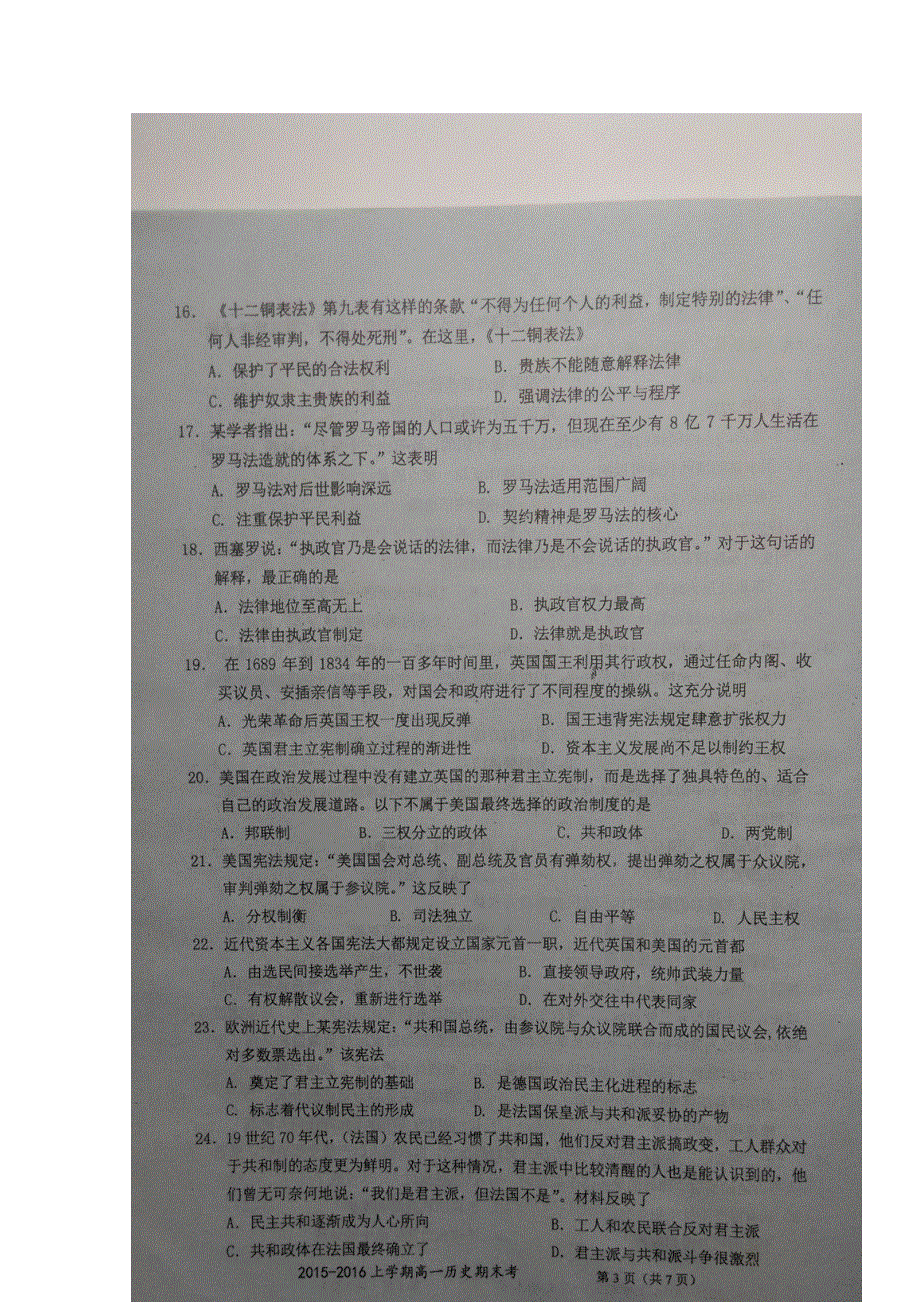 16. 《十二铜表法》第九表有这样的条款“不得为任何个人的利益，制定特别的法律”、“任
何人非经审判，不得处死刑”。在这里，《十二铜表法》
A. 保护了平民的合法权利 B. 贵族不能随意解释法律
C. 维护奴隶主贵族的利益 D. 强调法律的公平与程序
17. 某学者指出：“尽管罗马帝国的人口或许为五千万，但现在至少有 8 亿 7 千万人生活在
罗马法造就的体系之下。”这表明
A. 罗马法对后世影响深远 B. 罗马法适用范围广阔
C. 注重保护平民利益 D. 契约精神是罗马法的核心
18. 西塞罗说：“执政官乃是会说话的法律，而法律乃是不会说话的执政官。”对于这句话的
解释，最正确的是
A. 法律地位至高无上 B. 执政官权力最高
C. 法律由执政官制定 D. 法律就是执政官
19. 在 1689 年到 1834 年的一百多年时间里，英国国王利用其行政权，通过任命内阁、收
买议员、安插亲信等手段，对国会和政府进行了不同程度的操纵。这充分说明
A. 光荣革命后英国王权一度出现反弹 B. 国王违背宪法规定肆意扩张权力
C. 英国君主立宪制确立过程的渐进性 D. 资本主义发展尚不足以制约王权
20. 美国在政治发展过程中没有建立英国的那种君主立宪制，而是选择了独具特色的、适合
自己的政治发展道路。以下不属于美国最终选择的政治制度的是
A. 邦联制 B. 三权分立的政体 C. 共和政体 D. 两党制
21. 美国宪法规定：“美国国会对总统、副总统及官员有弹劾权，提出弹劾之权属于众议院，
审判弹劾之权属于参议院。”这反映了
A. 分权制衡 B. 司法独立 C. 自由平等 D. 人民主权
22. 近代资本主义各国宪法大都规定设立国家元首一职，近代英国和美国的元首都
A. 由选民间接选举产生，不世袭 B. 直接领导政府，统帅武装力量
C. 有权解散议会，重新进行选举 D. 在对外交往中代表同家
23. 欧洲近代史上某宪法规定：“共和国总统，由参议院与众议院联合而成的国民议会,依绝
对多数票选出。”该宪法
A. 奠定了君主立宪制的基础 B. 是德国政治民主化进程的标志
C. 标志着代议制民主的形成 D. 是法国保皇派与共和派妥协的产物
24. 19 世纪 70 年代，（法国）农民已经习惯了共和国，他们反对君主派搞政变，工人群众对
于共和制的态度更为鲜明。对于这种情况，君主派中比较清醒的人也是能认识到的，他
们曾无可奈何地说：“我们是君主派，但法国不是”。材料反映了
A. 民主共和逐渐成为人心所向 B. 工人和农民联合反对君主派
C. 共和政体在法国最终确立了 D. 君主派与共和派斗争很激烈
2015-2016 上学期高一历史期末考 第 3 页（共 7 页）